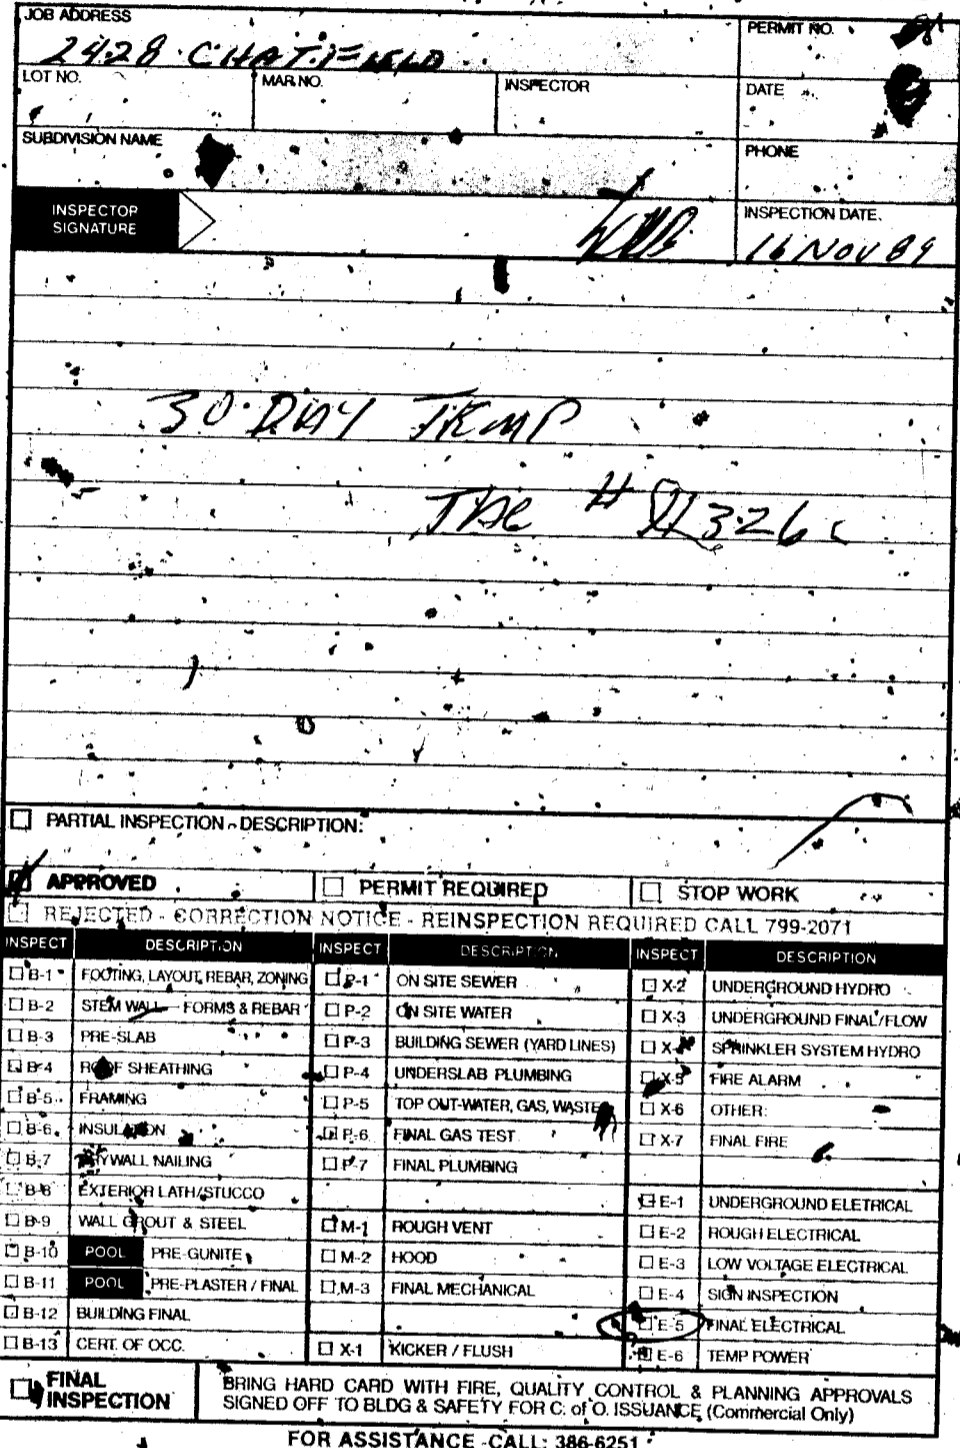 JOB ADDRESS
PERMIT NO.
2428 CHATFIELD
LOT NO. MAP NO. INSPECTOR DATE
SUBDIVISION NAME
PHONE
INSPECTOR SIGNATURE
INSPECTION DATE
16 NOV 89
30 DAY TEMP
#
PARTIAL INSPECTION - DESCRIPTION:
APPROVED PERMIT REQUIRED STOP WORK
REJECTED - CORRECTION NOTICE - REINSPECTION REQUIRED CALL 799-2071
INSPECT DESCRIPTION INSPECT DESCRIPTION INSPECT DESCRIPTION
B-1 FOOTING, LAYOUT, REBAR, ZONING P-1 ON SITE SEWER X-2 UNDERGROUND HYDRO
B-2 STEM WALL - FORMS & REBAR P-2 ON SITE WATER X-3 UNDERGROUND FINAL/FLOW
B-3 PRE-SLAB P-3 BUILDING SEWER (YARD LINES) X-4 SPRINKLER SYSTEM HYDRO
B-4 ROOF SHEATHING P-4 UNDERSLAB PLUMBING X-5 FIRE ALARM
B-5 FRAMING P-5 TOP OUT-WATER, GAS, WASTE X-6 OTHER:
B-6 INSULATION P-6 FINAL GAS TEST X-7 FINAL FIRE
B-7 DRYWALL NAILING P-7 FINAL PLUMBING
B-8 EXTERIOR LATH/STUCCO E-1 UNDERGROUND ELETRICAL
B-9 WALL GROUT & STEEL M-1 ROUGH VENT E-2 ROUGH ELECTRICAL
B-10 POOL PRE-GUNITE M-2 HOOD E-3 LOW VOLTAGE ELECTRICAL
B-11 POOL PRE-PLASTER / FINAL M-3 FINAL MECHANICAL E-4 SIGN INSPECTION
B-12 BUILDING FINAL E-5 FINAL ELECTRICAL
B-13 CERT. OF OCC. X-1 KICKER / FLUSH E-6 TEMP POWER
FINAL INSPECTION
BRING HARD CARD WITH FIRE, QUALITY CONTROL & PLANNING APPROVALS
SIGNED OFF TO BLDG & SAFETY FOR C. of O. ISSUANCE (Commercial Only)
FOR ASSISTANCE - CALL: 386-6251